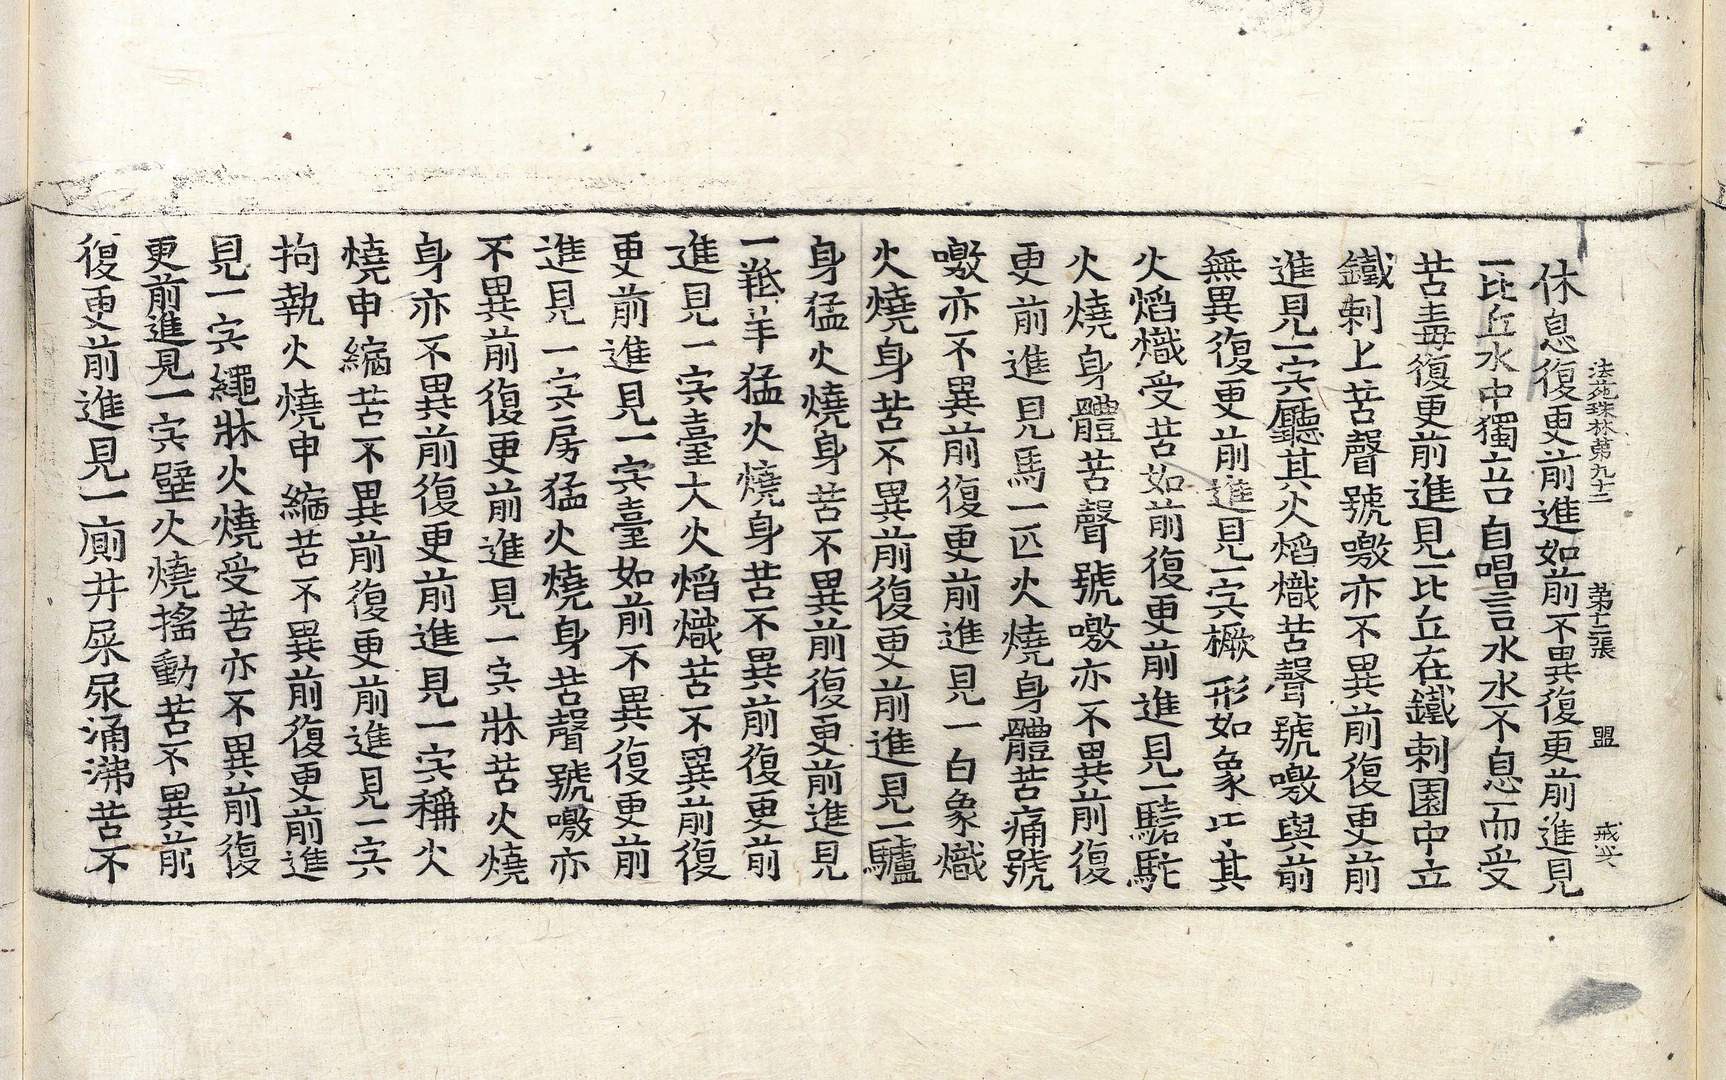 法苑珠林第九十二 張 盟
休息復更前進如前不異復更前進見
一比丘水中獨立口自唱言水水不息而受
苦毒復更前進見一比丘在鐵刺園中立
鐵刺上苦聲號噭亦不異前復更前
進見一宍廳其火焰熾苦聲號噭與前
無異復更前進見一宍橛形如象牙其
火焰熾受苦如前復更前進見一駱駝
火燒身體苦聲號噭亦不異前復
更前進見馬一匹火燒身體苦痛號
噭亦不異前復更前進見一白象熾
火燒身苦不異前復更前進見一驢
身猛火燒身苦不異前復更前進見
一羝羊猛火燒身苦不異前復更前
進見一宍臺大火焰熾苦不異前復
更前進見一宍臺如前不異復更前
進見一宍房猛火燒身苦聲號噭亦
不異前復更前進見一宍牀苦火燒
身亦不異前復更前進見一宍稱火
燒申縮苦不異前復更前進見一宍
拘執火燒申縮苦不異前復更前進
見一宍繩牀火燒受苦亦不異前復
更前進見一宍壁火燒搖動苦不異前
復更前進見一廁井屎尿涌沸苦不